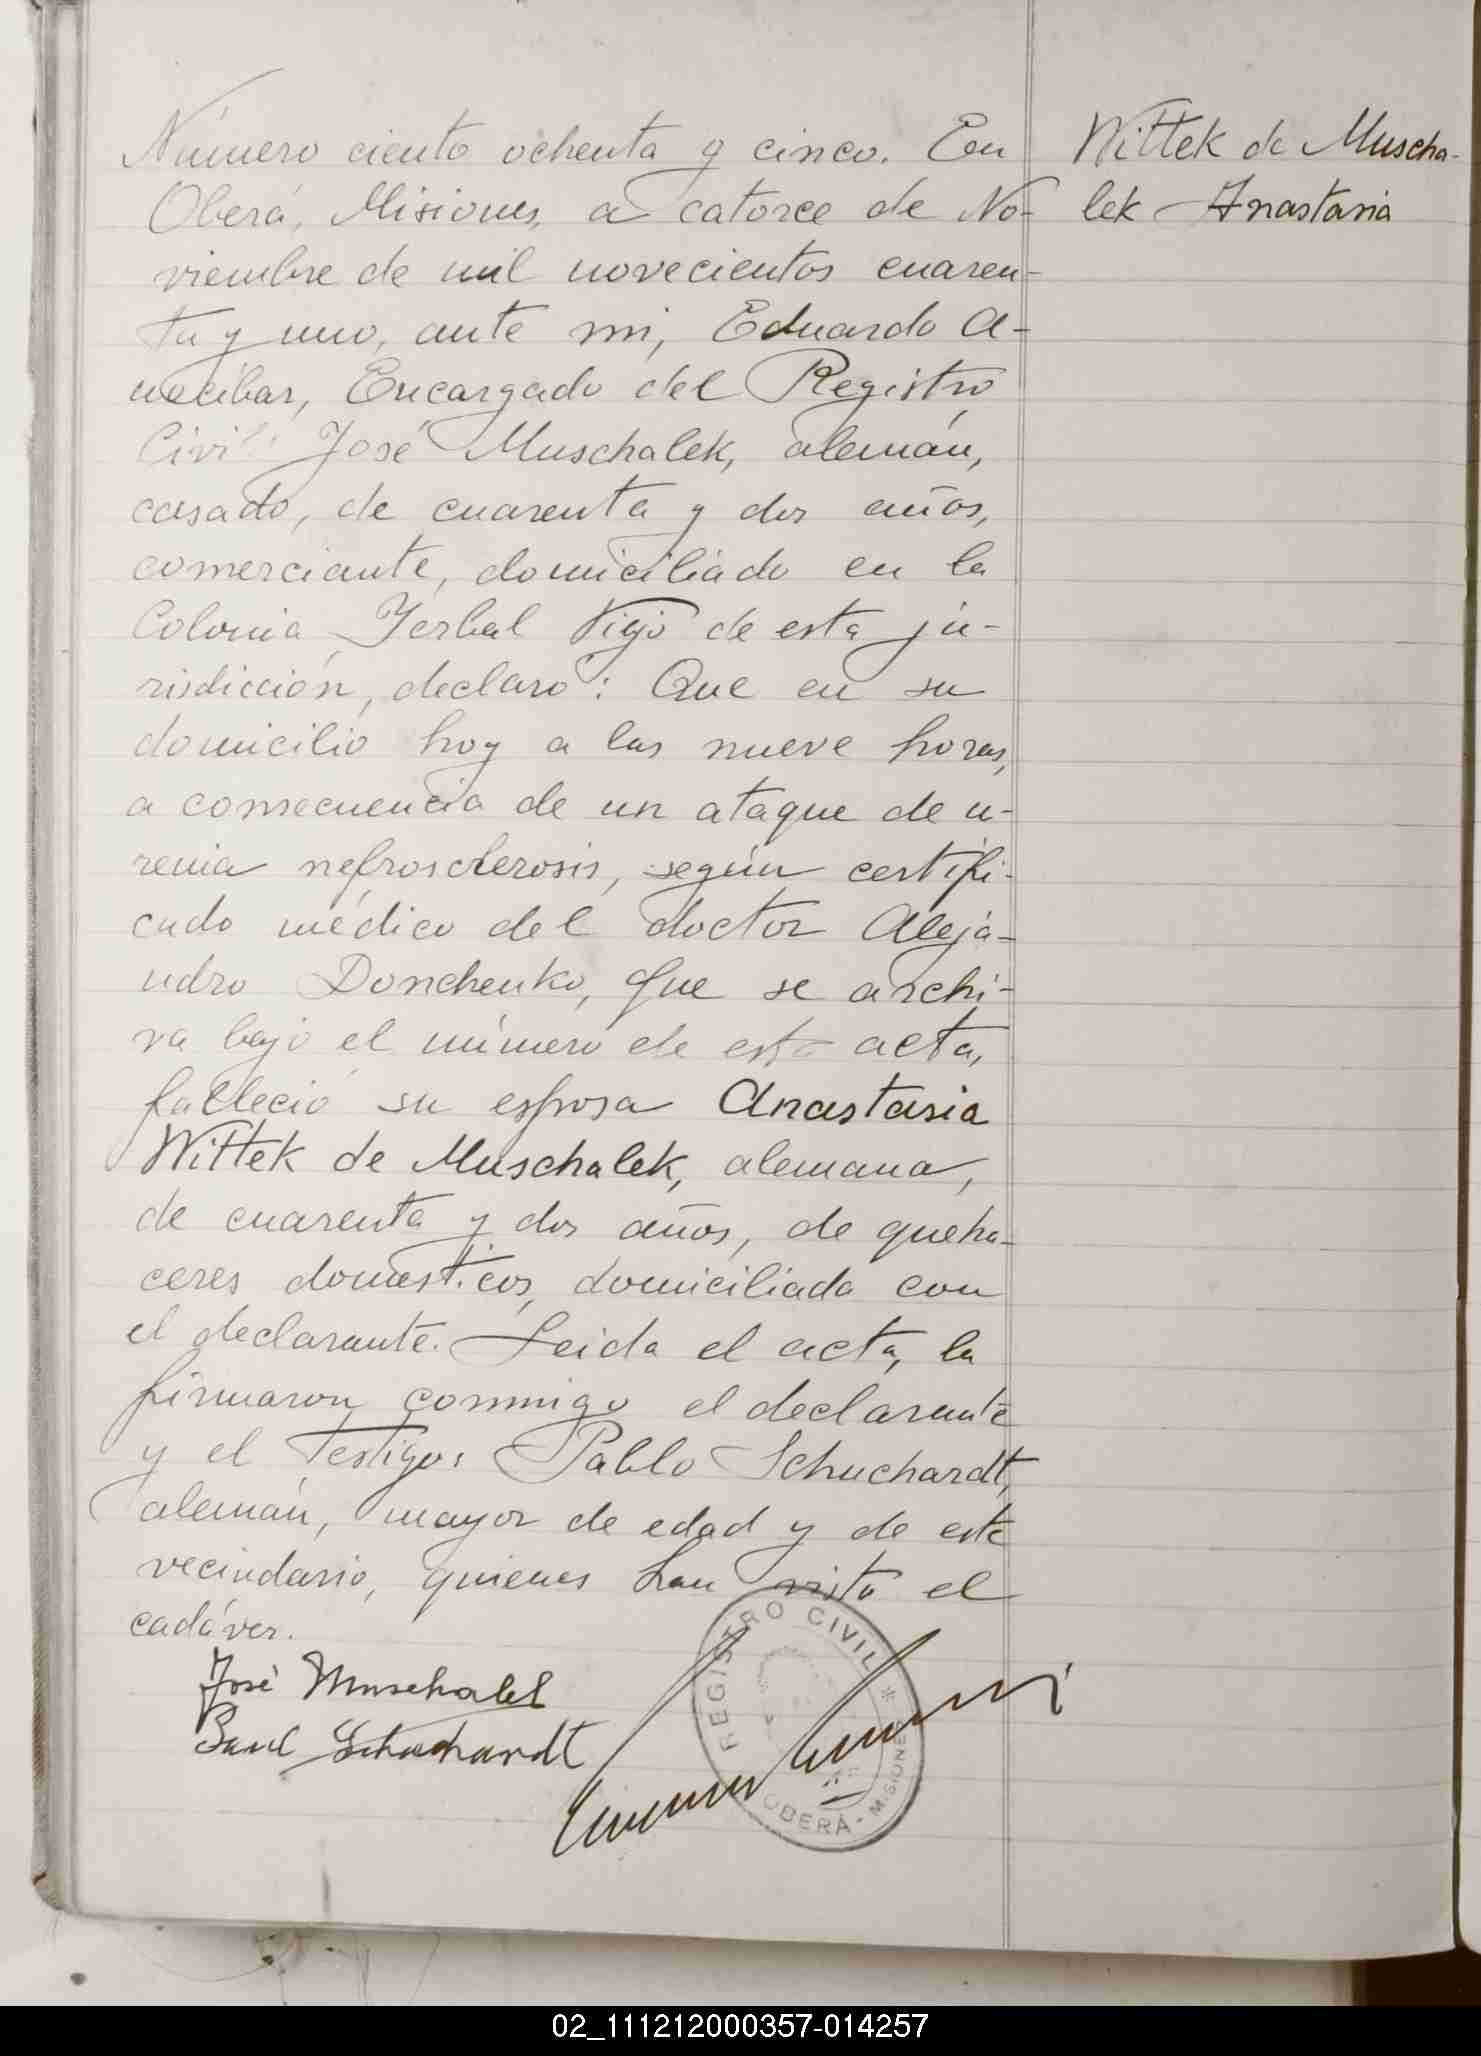 Número ciento ochenta y cinco. En
Oberá, Misiones, a catorce de No-
viembre de mil novecientos cuaren-
ta y uno, ante mi, Eduardo A-
necibar, Encargado del Registro
Civil: José Muschalek, alemán,
casado, de cuarenta y dos años,
comerciante, domiciliado en la
Colonia Yerbal Viejo de esta ju-
risdicción, declaró: Que en su
domicilio hoy a las nueve horas,
a consecuencia de un ataque de u-
remia nefrosclerosis, según certifi-
cado médico del doctor Alejá-
ndro Donchenko, que se archi-
va bajo el número de esta acta,
falleció su esposa Anastasia
Wittek de Muschalek, alemana,
de cuarenta y dos años, de queha-
ceres domésticos, domiciliada con
el declarante. Leida el acta, la
firmaron conmigo el declarante
y el testigo: Pablo Schuchardt,
alemán, mayor de edad y de este
vecindario, quienes han visto el
cadáver.
José Muschalek
Paul Schuchardt
REGISTRO CIVIL * OBERÁ - MISIONES
Wittek de Muscha-
lek Anastasia
02_111212000357-014257